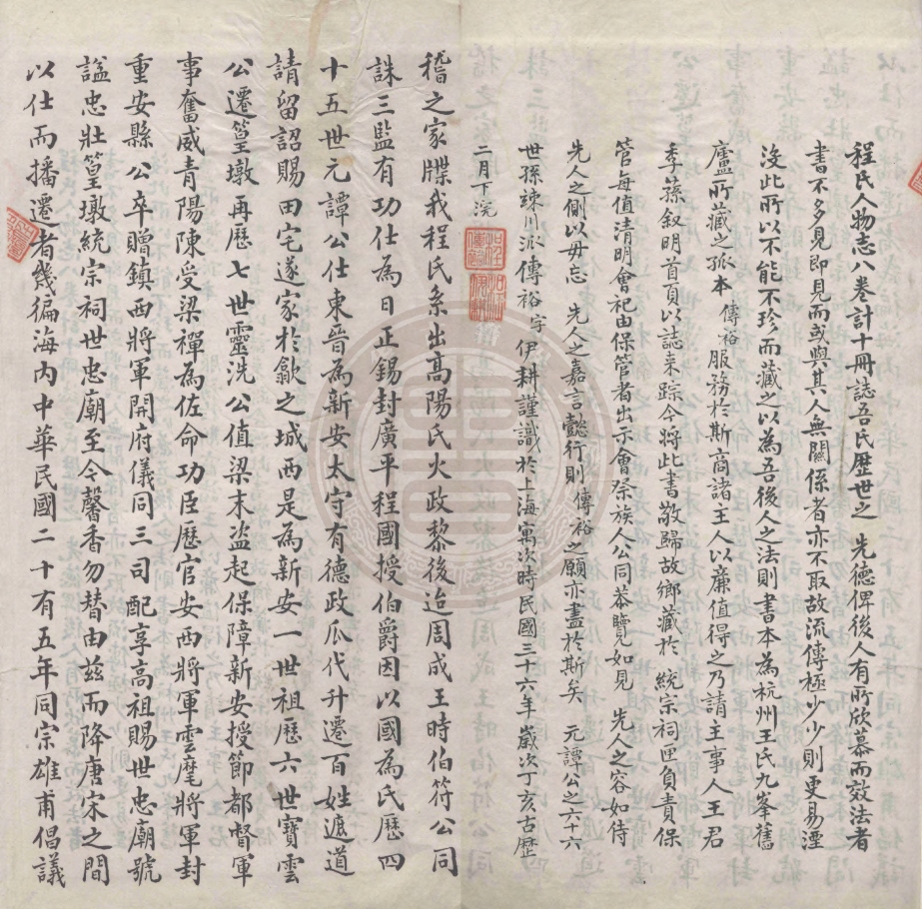 程氏人物志八卷計十冊誌吾氏歷世之 先德俾後人有所欣慕而效法者
書不多見即見而或與其人無關係者亦不取故流傳極少少則更易湮
沒此所以不能不珍而藏之以為吾後人之法則書本為杭州王氏九峯舊
廬所藏之孤本 傳裕服務於斯商諸主人以廉值得之乃請主事人王君
季蓀叙明首頁以誌来踪今將此書敬歸故鄉藏於 統宗祠匣負責保
管每值清明會祀由保管者出示會祭族人公同恭覽如見 先人之容如侍
先人之側以毋忘 先人之嘉言懿行則傳裕之願亦盡於斯矣 元譚公之六十六
世孫 川派傳裕字伊耕謹識於上海寓次時民國三十六年歲次丁亥古歷
二月下浣
稽之家牒我程氏系出高陽氏火政黎後迨周成王時伯符公同
誅三監有功仕為日正錫封廣平程國授伯爵因以國為氏歷四
十五世元譚公仕東晉為新安太守有德政瓜代升遷百姓遮道
請留詔賜田宅遂家於歙之城西是為新安一世祖歷六世寶雲
公遷篁墩再歷七世靈洗公值梁末盜起保障新安授節都督軍
事奮威青陽陳受梁禪為佐命功臣歷官安西將軍雲麾將軍封
重安縣公卒贈鎮西將軍開府儀同三司配享高祖賜世忠廟號
謚忠壯篁墩統宗祠世忠廟至今馨香勿替由兹而降唐宋之間
以仕而播遷者幾徧海内中華民國二十有五年同宗雄甫倡議